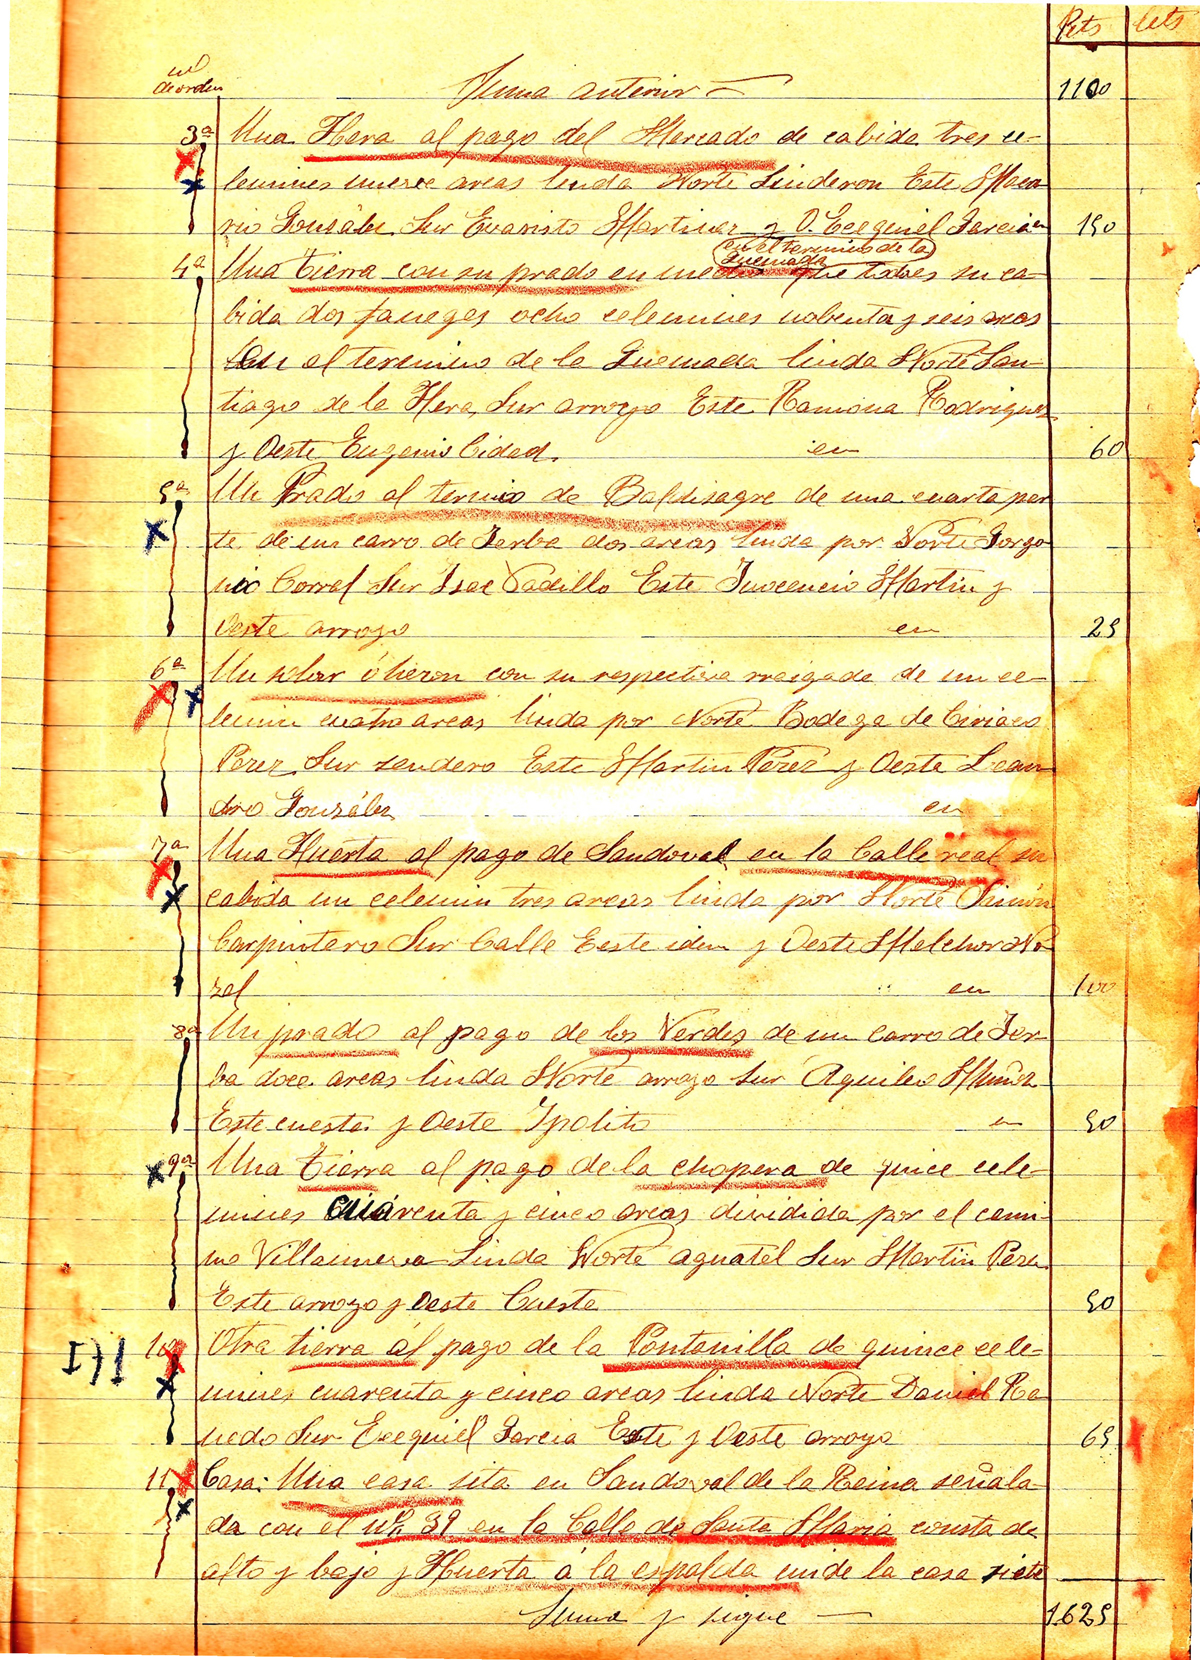 Pets Cets
nº
de orden Suma anterior 1100
3ª Una Hera al pago del Mercado de cabida tres ce-
lemines nueve areas linda Norte Linderon Este Maca
rio Gonzalez Sur Evaristo Martinez y D. Ecequiel Garcia en 150
en el termino de la
Quemada
4ª Una tierra con su prado en medio que todos su ca-
bida dos fanegas ocho celemines nobenta y seis areas
al termino de la Quemada linda Norte San-
tiago de la Hera, Sur arroyo Este Ramona Rodriguez
y Oeste Eugenio Cidad. en 60
5ª Un Prado al termio de Baldisagre de una cuarta par
te de un carro de Jerba dos areas linda por Norte Gorgo
nio Corral Sur Isac Padillo Este Inocencio Martin y
Oeste arroyo en 25
6ª Un solar ó hieron con su respectiva de un ce-
lemin cuatro areas linda por Norte Bodega de Ciriaco
Perez Sur sendero Este Martin Perez y Oeste Lean
dro Gonzalez en
7ª Una Huerta al pago de Sandoval en la Calle real su
cabida un celemin tres areas linda por Norte Simón
Carpintero Sur Calle Eeste idem y Oeste Melchor No
zal en 100
8ª Un prado al pago de los Verdes de un carro de Jer-
ba doce areas linda Norte arroyo Sur Aquileo Muñoz
Este cuesta y Oeste Ypolito en 50
9ª Una tierra al pago de la chopera de quice cele-
mines cuarenta y cinco areas dividida por el cami-
no Villanueva Linda Norte aguatel Sur Martin Perez
Este arroyo y Oeste Cuesta 50
10ª Otra tierra al pago de la Pontanilla de quince cele-
mines cuarenta y cinco areas linda Norte Daniel Re
nedo Sur Ecequiel Garcia Este y Oeste arroyo 65
11 Casa: Una casa sita en Sandoval de la Reina señala
da con el nº 39 en la Calle de Santa Maria consta de
alto y bajo y Huerta á la espalda mide la casa siete
Suma y sigue 1.625